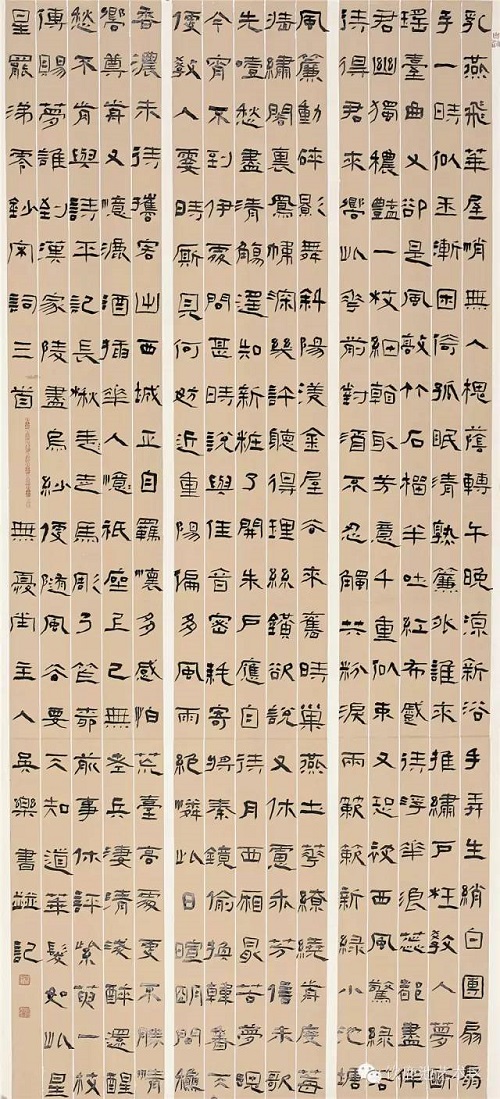 乳燕飛華屋悄無人槐蔭轉午晚涼新浴手弄生綃白團扇扇
手一時似玉漸困倚孤眠清熟簾外誰來推繡戶枉教人夢斷
瑤臺曲又卻是風敲竹石榴半吐紅巾蹙待浮華浪蕊都盡伴
君幽獨穠豔一枝細看取芳意千重似束又恐被西風驚綠若
待得君來嚮此花前對酒不忍觸共粉淚兩簌簌新綠小池塘
風簾動碎影舞斜陽羨金屋去來舊時巢燕土華繚繞前度莓
墻繡閣裏鳳幃深幾許聽得理絲簧欲說又休慮乖芳信未歌
先噎愁盡清觴遙知新粧了開朱戶應自待月西廂最苦夢魂
今宵不到伊行問甚時說與佳音密耗寄將秦鏡偷換韓香天
便教人霎時廝見何妨近重陽偏多風雨絕憐此日暄明問秋
香濃未待攜客出西城正自羈懷多感怕荒臺高處更不勝情
嚮尊前又憶漉酒插華人憶祇座上已無老兵淒清淺醉還醒
愁不肯與詩平記長楸走馬彫弓笮前事休評紫萸一枝
傳賜夢誰到漢家陵盡烏紗便隨風去要天知道華髮如此星
星罷涕零鈔宋詞三首 無憂閣主人吳樂書並記